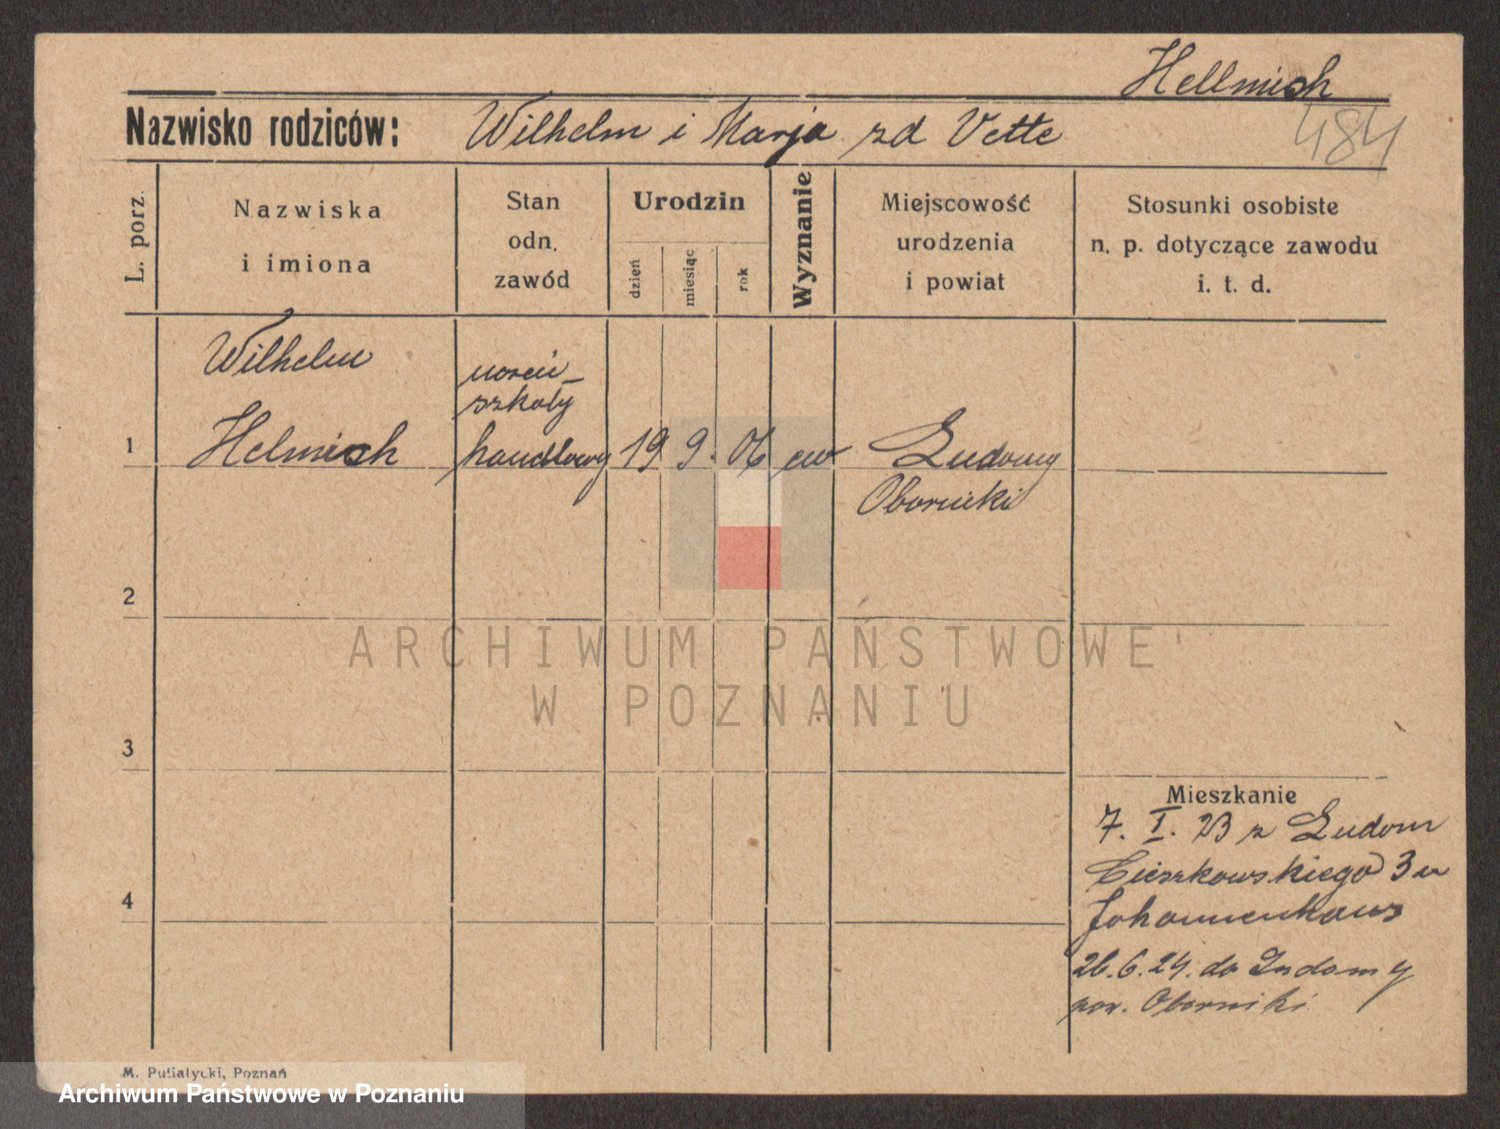 Hellmich
Nazwisko rodziców: Wilhelm i Marja zd Vette
484
L. porz.
Nazwiska
i imiona
Stan
odn.
zawód
Urodzin
dzień
miesiąc
rok
Wyznanie
Miejscowość
urodzenia
i powiat
Stosunki osobiste
n. p. dotyczące zawodu
i. t. d.
1
Wilhelm
Helmich
uczeń
szkoły
handlowy
19 9. 06 ew
Ludomy
Oborniki
2
ARCHIWUM PAŃSTWOWE
W POZNANIU
3
4
Mieszkanie
7. I. 23 z Ludom
Cieszkowskiego 3 u
Johannenhaus
26.6.24. do Ludomy
pow. Oborniki
M. Putiatycki, Poznań
Archiwum Państwowe w Poznaniu